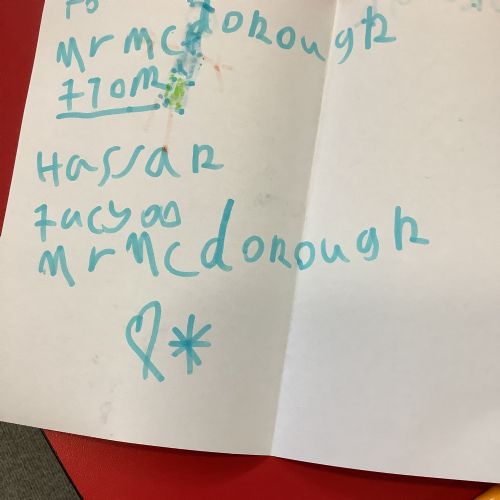 To
Mr mcdonough
from
Hassan
Facyoo
Mr Mcdonough